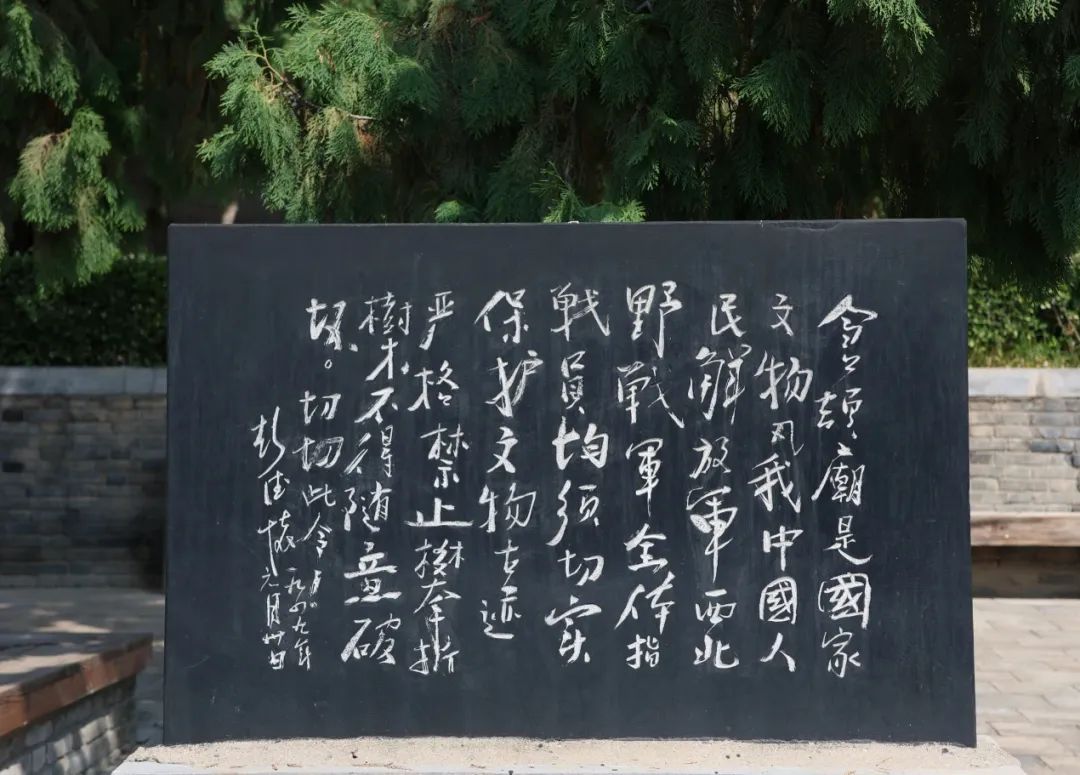 仓頡廟是國家
文物凡我中國人
民解放軍西北
野戰軍全体指
戰員均須切实
保护文物古迹
严格禁止攀折
樹木不得隨意破
坏。切切此令。
一九四九年
彭德怀